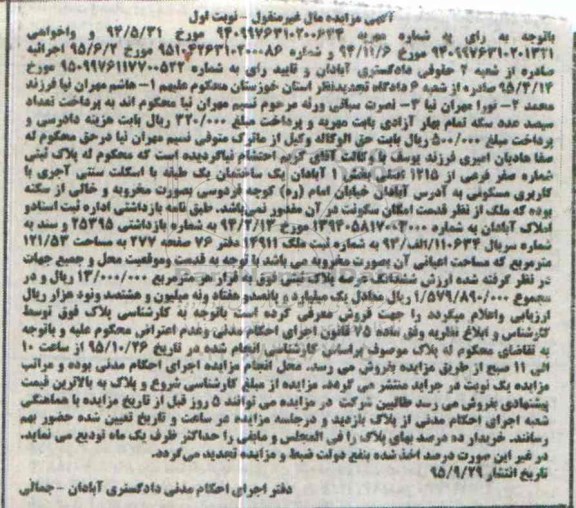 آگهی مزایده مال غیرمنقول - نوبت اول
باتوجه به رای به شماره مهریه ۹۴۰۹۹۷۶۳۱۰۲۰۰۶۴۴ مورخ ۹۴/۵/۳۱ و واخواهی
۹۴۰۹۹۷۶۳۱۰۲۰۱۳۲۱ مورخ ۹۴/۱۱/۶ و شماره ۹۵۱۰۴۲۶۳۱۰۲۰۰۰۸۶ مورخ ۹۵/۶/۲ اجرائیه
صادره از شعبه ۲ حقوقی دادگستری آبادان و تایید رای به شماره ۹۵۰۹۹۷۶۱۱۷۷۰۰۵۲۲ مورخ
۹۵/۴/۱۴ صادره از شعبه ۶ دادگاه تجدیدنظر استان خوزستان محکوم علیهم ۱- هاشم مهران نیا فرزند
محمد ۲- نورا مهران نیا ۳- نصرت میاتی ورثه مرحوم نسیم مهران نیا محکوم اند به پرداخت تعداد
سیصد عدد سکه تمام بهار آزادی بابت مهریه و پرداخت مبلغ ۳۲۰/۰۰۰ ریال بابت هزینه دادرسی و
پرداخت مبلغ ۵۰۰/۰۰۰ ریال بابت حق الوکاله وکیل از ماترک متوفی نسیم مهران نیا درحق محکوم له
صفا هادیان امیری فرزند یوسف با وکالت آقای کریم احتشام نیا گردیده است که محکوم له پلاک ثبتی
شماره صفر فرعی از ۱۲۱۵ اصلی بخش ۱ آبادان یک ساختمان یک طبقه با اسکلت سنتی آجری با
کاربری مسکونی به آدرس آبادان خیابان امام (ره) کوچه فردوسی بصورت مخروبه و خالی از سکنه
بوده که ملک از نظر قدمت امکان سکونت در آن مقدور نمی‌باشد. طبق نامه بازداشتی اداره ثبت اسنادو
املاک آبادان به شماره ۱۳۹۳۰۵۸۱۷۰۰۲۰۰۰ مورخ ۹۳/۲/۱۳ به شماره بازداشتی ۲۵۳۹۵ و سند به
شماره سریال ۱۱۰۶۳۳/الف/۹۲ به شماره ثبت ملک ۱۴۹۱۱ دفتر ۷۶ صفحه ۲۷۷ به مساحت ۱۲۱/۵۳
مترمربع که مساحت اعیانی آن بصورت مخروبه می باشد با توجه به قدمت وموقعیت محل و جمیع جهات
در نظر گرفته شده ارزش ششدانگ عرصه پلاک ثبتی فوق به قرار هر مترمربع ۱۳/۰۰۰/۰۰۰ ریال و در
مجموع ۱/۵۷۹/۸۹۰/۰۰۰ ریال معادل یک میلیارد و پانصدو هفتاد ونه میلیون و هشتصد ونود هزار ریال
ارزیابی واعلام میگردد را جهت فروش معرفی کرده است باتوجه به کارشناسی پلاک فوق توسط
کارشناس و ابلاغ نظریه وفق ماده ۷۵ قانون اجرای احکام مدنی وعدم اعتراض محکوم علیه و باتوجه
به تقاضای محکوم له پلاک موصوف براساس کارشناسی انجام شده در تاریخ ۹۵/۱۰/۲۶ از ساعت ۱۰
الی ۱۱ صبح از طریق مزایده بفروش می رسد. محل انجام مزایده اجرای احکام مدنی بوده و مراتب
مزایده یک نوبت در جراید منتشر می گردد. مزایده از مبلغ کارشناسی شروع و پلاک به بالاترین قیمت
پیشنهادی بفروش می رسد طالبین شرکت در مزایده می توانند ۵ روز قبل از تاریخ مزایده با هماهنگی
شعبه اجرای احکام مدنی از پلاک بازدید و درجلسه مزایده در ساعت و تاریخ تعیین شده حضور بهم
رسانند. خریدار ده درصد بهای پلاک را فی المجلس و مابقی را حداکثر ظرف یک ماه تودیع می نماید.
در غیر این صورت درصد اخذ شده بنفع دولت ضبط و مزایده تجدید می‌گردد.
تاریخ انتشار ۹۵/۹/۲۹
دفتر اجرای احکام مدنی دادگستری آبادان - جمالی